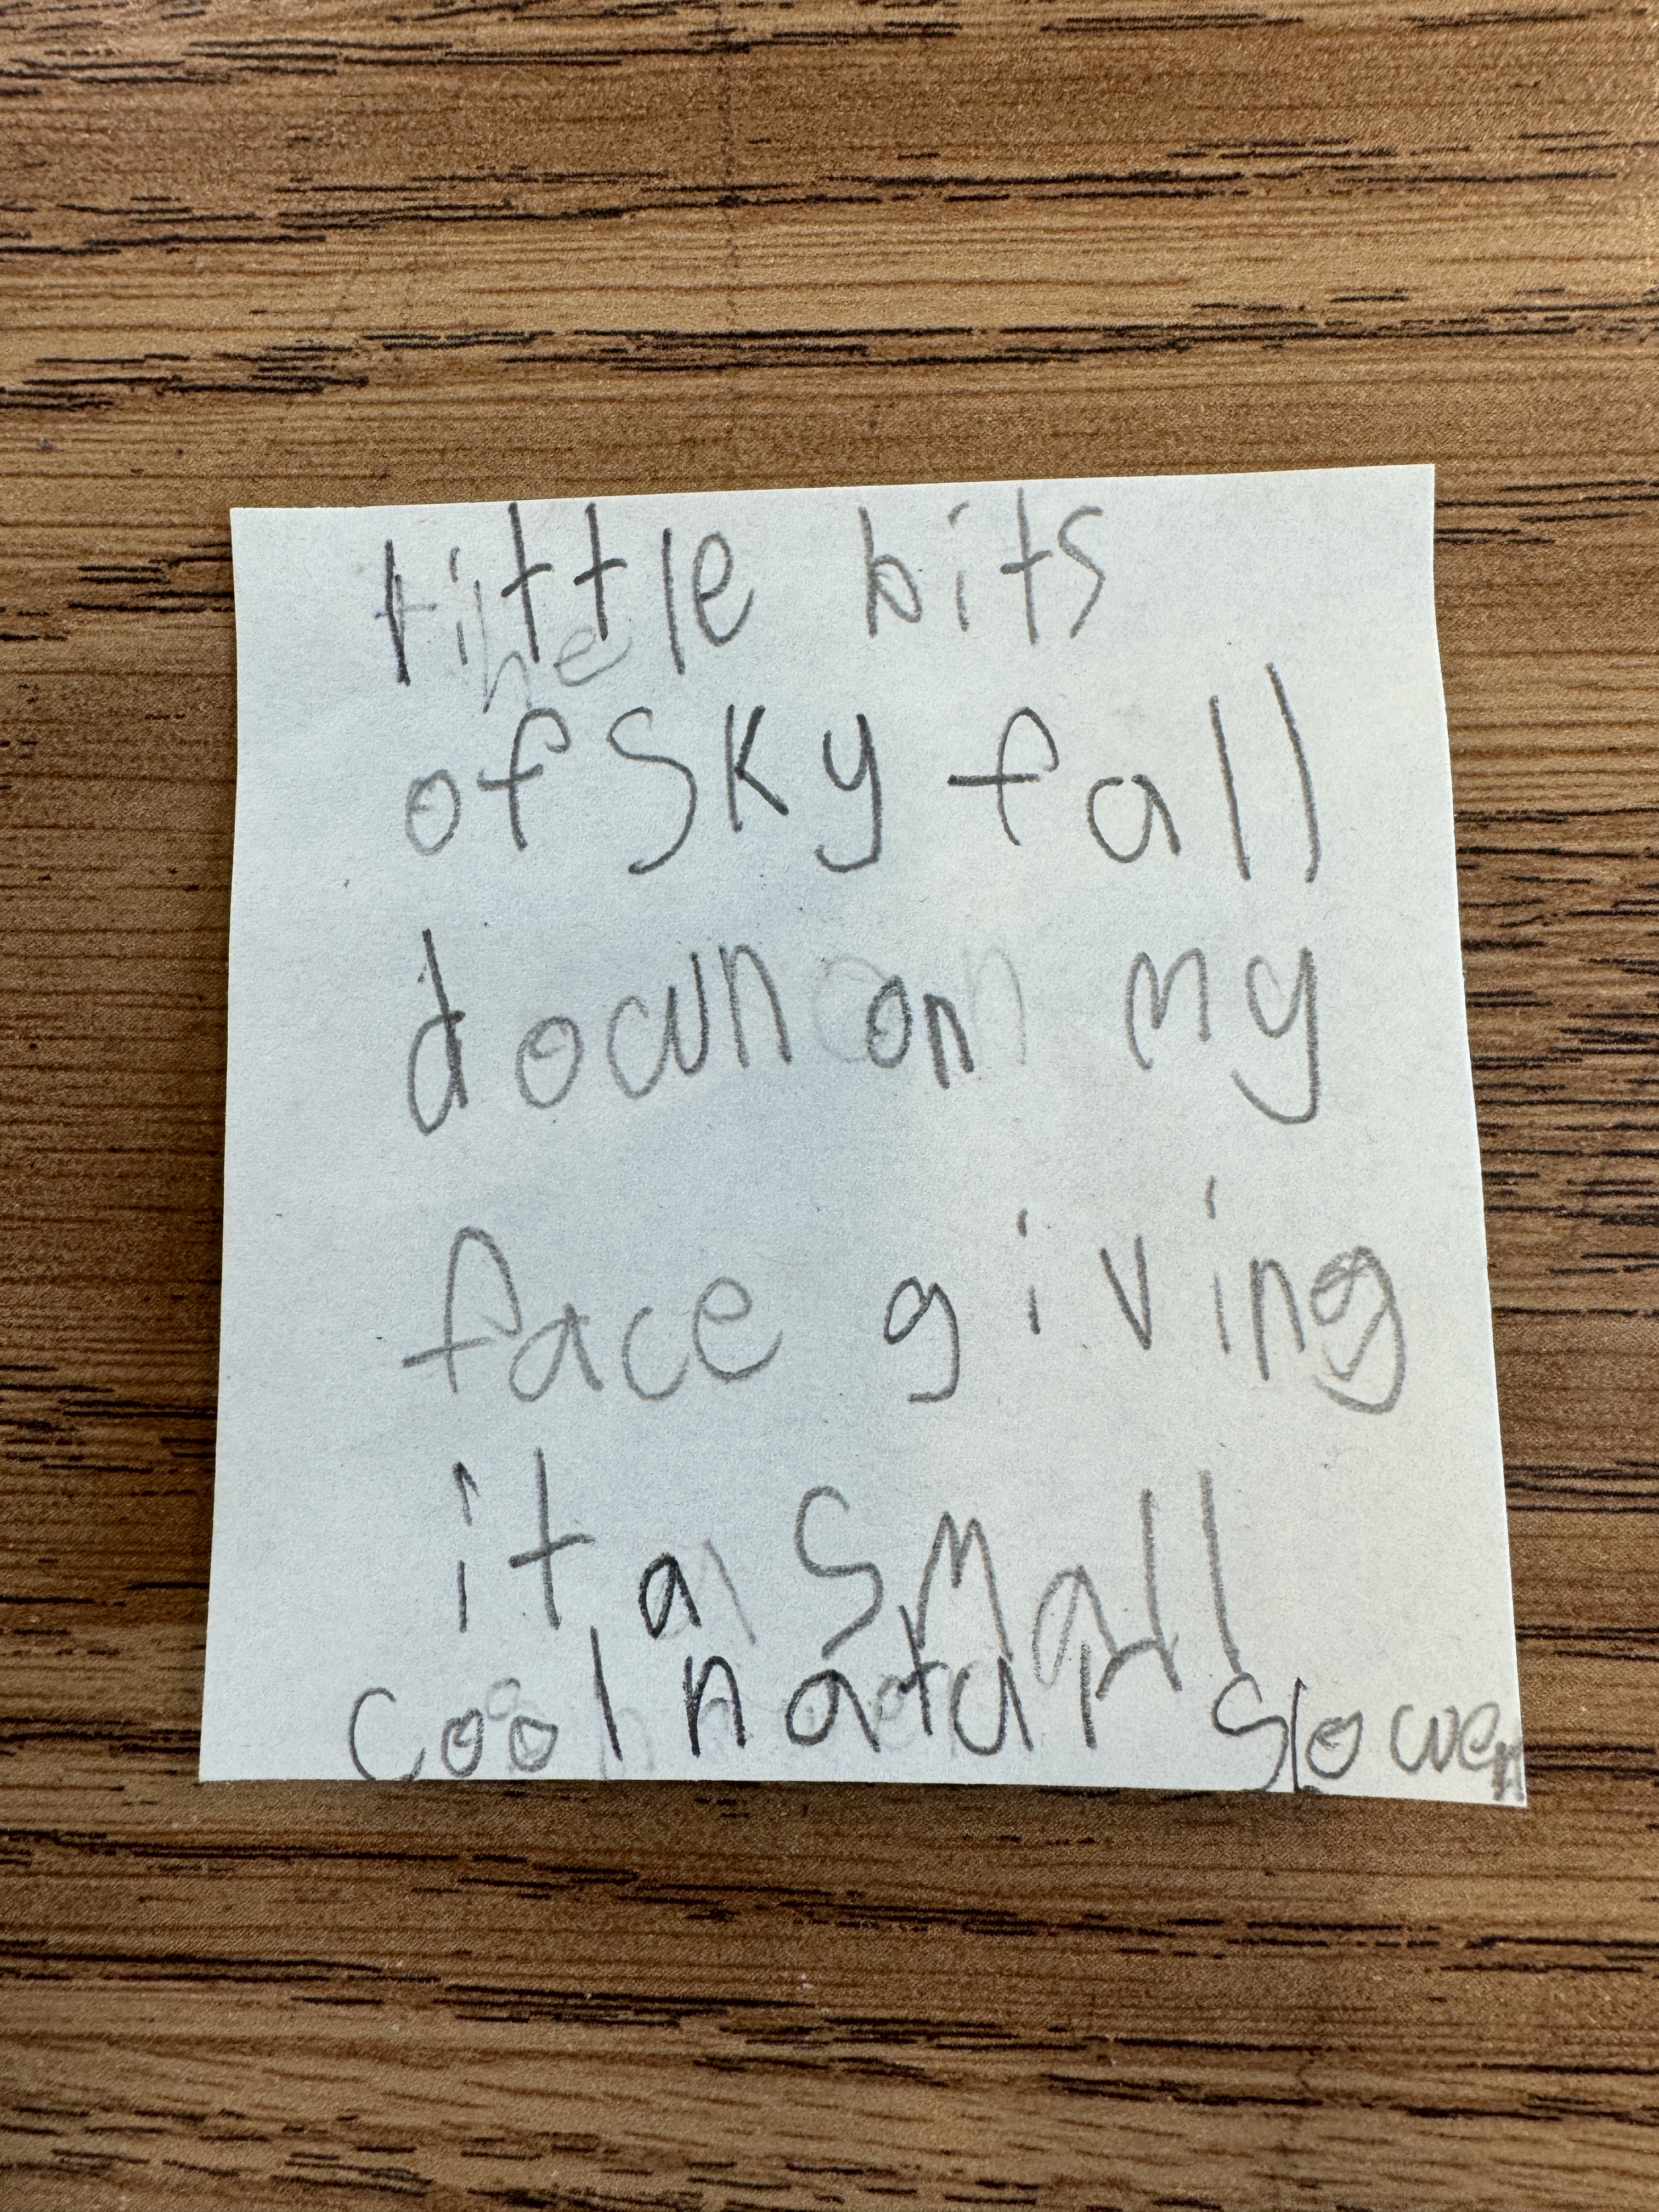 little bits
of sky fall
down on my
face giving
it a small
cool natur slower